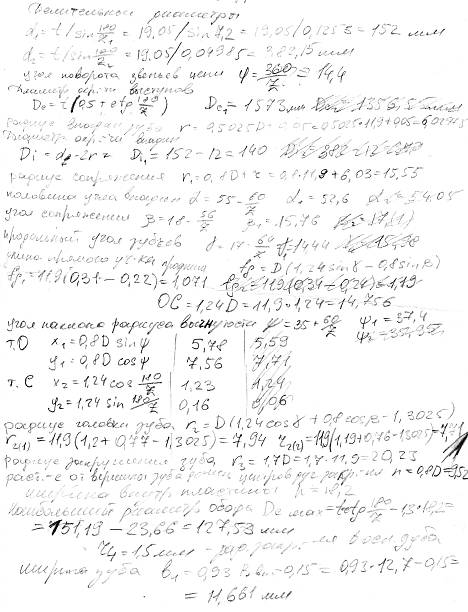 Делительный диаметры
d₁ = t/sin 180/z₁ = 19.05/sin 7,2 = 19,05/0,1253 = 152 мм
d₂ = t/sin 180/z₂ = 19.05/0,04985 = 382,15 мм
угол поворота звеньев цепи φ = 360/z = 14,4
Диаметр окр-ти выступов
De = t(0,5 + ctg 180/z) De₁ = 1573 мм
радиус впадин зуба r = 0,5025D + 0,05 = 0,5025·11,9 + 0,05 = 6,02975
Диаметр окр-ти впадин
Di = d₂ - 2r = Di₁ = 152 - 12 = 140
радиус сопряжения r₁ = 0,8D + r = 0,8·11,9 + 6,03 = 15,55
половина угла впадин α = 55 - 60/z α₁ = 52,6 α₂ = 54.05
угол сопряжения β = 18 - 56/z β₁ = 15,76
продольный угол зубьев γ = 17 - 64/z γ₁ = 14,44
длина прямого уч-ка профиля fg = D(1,24 sinγ - 0,8 sinβ)
fg₁ = 11,9(0,31 - 0,22) = 1,071 fg₂ = 11,9(0,34 - 0,24) = 1,19
OC = 1,24D = 11,9·1,24 = 14,756
угол наклона радиуса вогнутости ψ = 35 + 60/z ψ₁ = 37,4
т.О x₁ = 0,8D sinψ 5,78 5,59
y₁ = 0,8D cosψ 7,56 7,71
т.С x₂ = 1,24 cos 180/z 1,23 1,24
y₂ = 1,24 sin 180/z 0,16 0,06
радиус головки зуба r₂ = D(1,24cosγ + 0,8cosβ - 1,3025)
r₂₍₁₎ = 11,9(1,2 + 0,77 - 1,3025) = 7,94 r₂₍₂₎ = 11,9(1,19 + 0,76 - 1,3025) =
радиус закругления зуба r₃ = 1,7D = 1,7·11,9 = 20,23
расст-е от вершины зуба до центров дуг закр-ия h = 0,8D = 9,52
ширина внутр пластины h = 18,2
наибольший диаметр обода Dc max = t ctg 180/z - 1,3·18,2 =
= 151,19 - 23,66 = 127,53 мм
r₄ = 1,5 мм - рад. закр-ия восн. зуба
ширина зуба в₁ = 0,93 Bвн - 0,15 = 0,93·12,7 - 0,15 =
= 11,661 мм